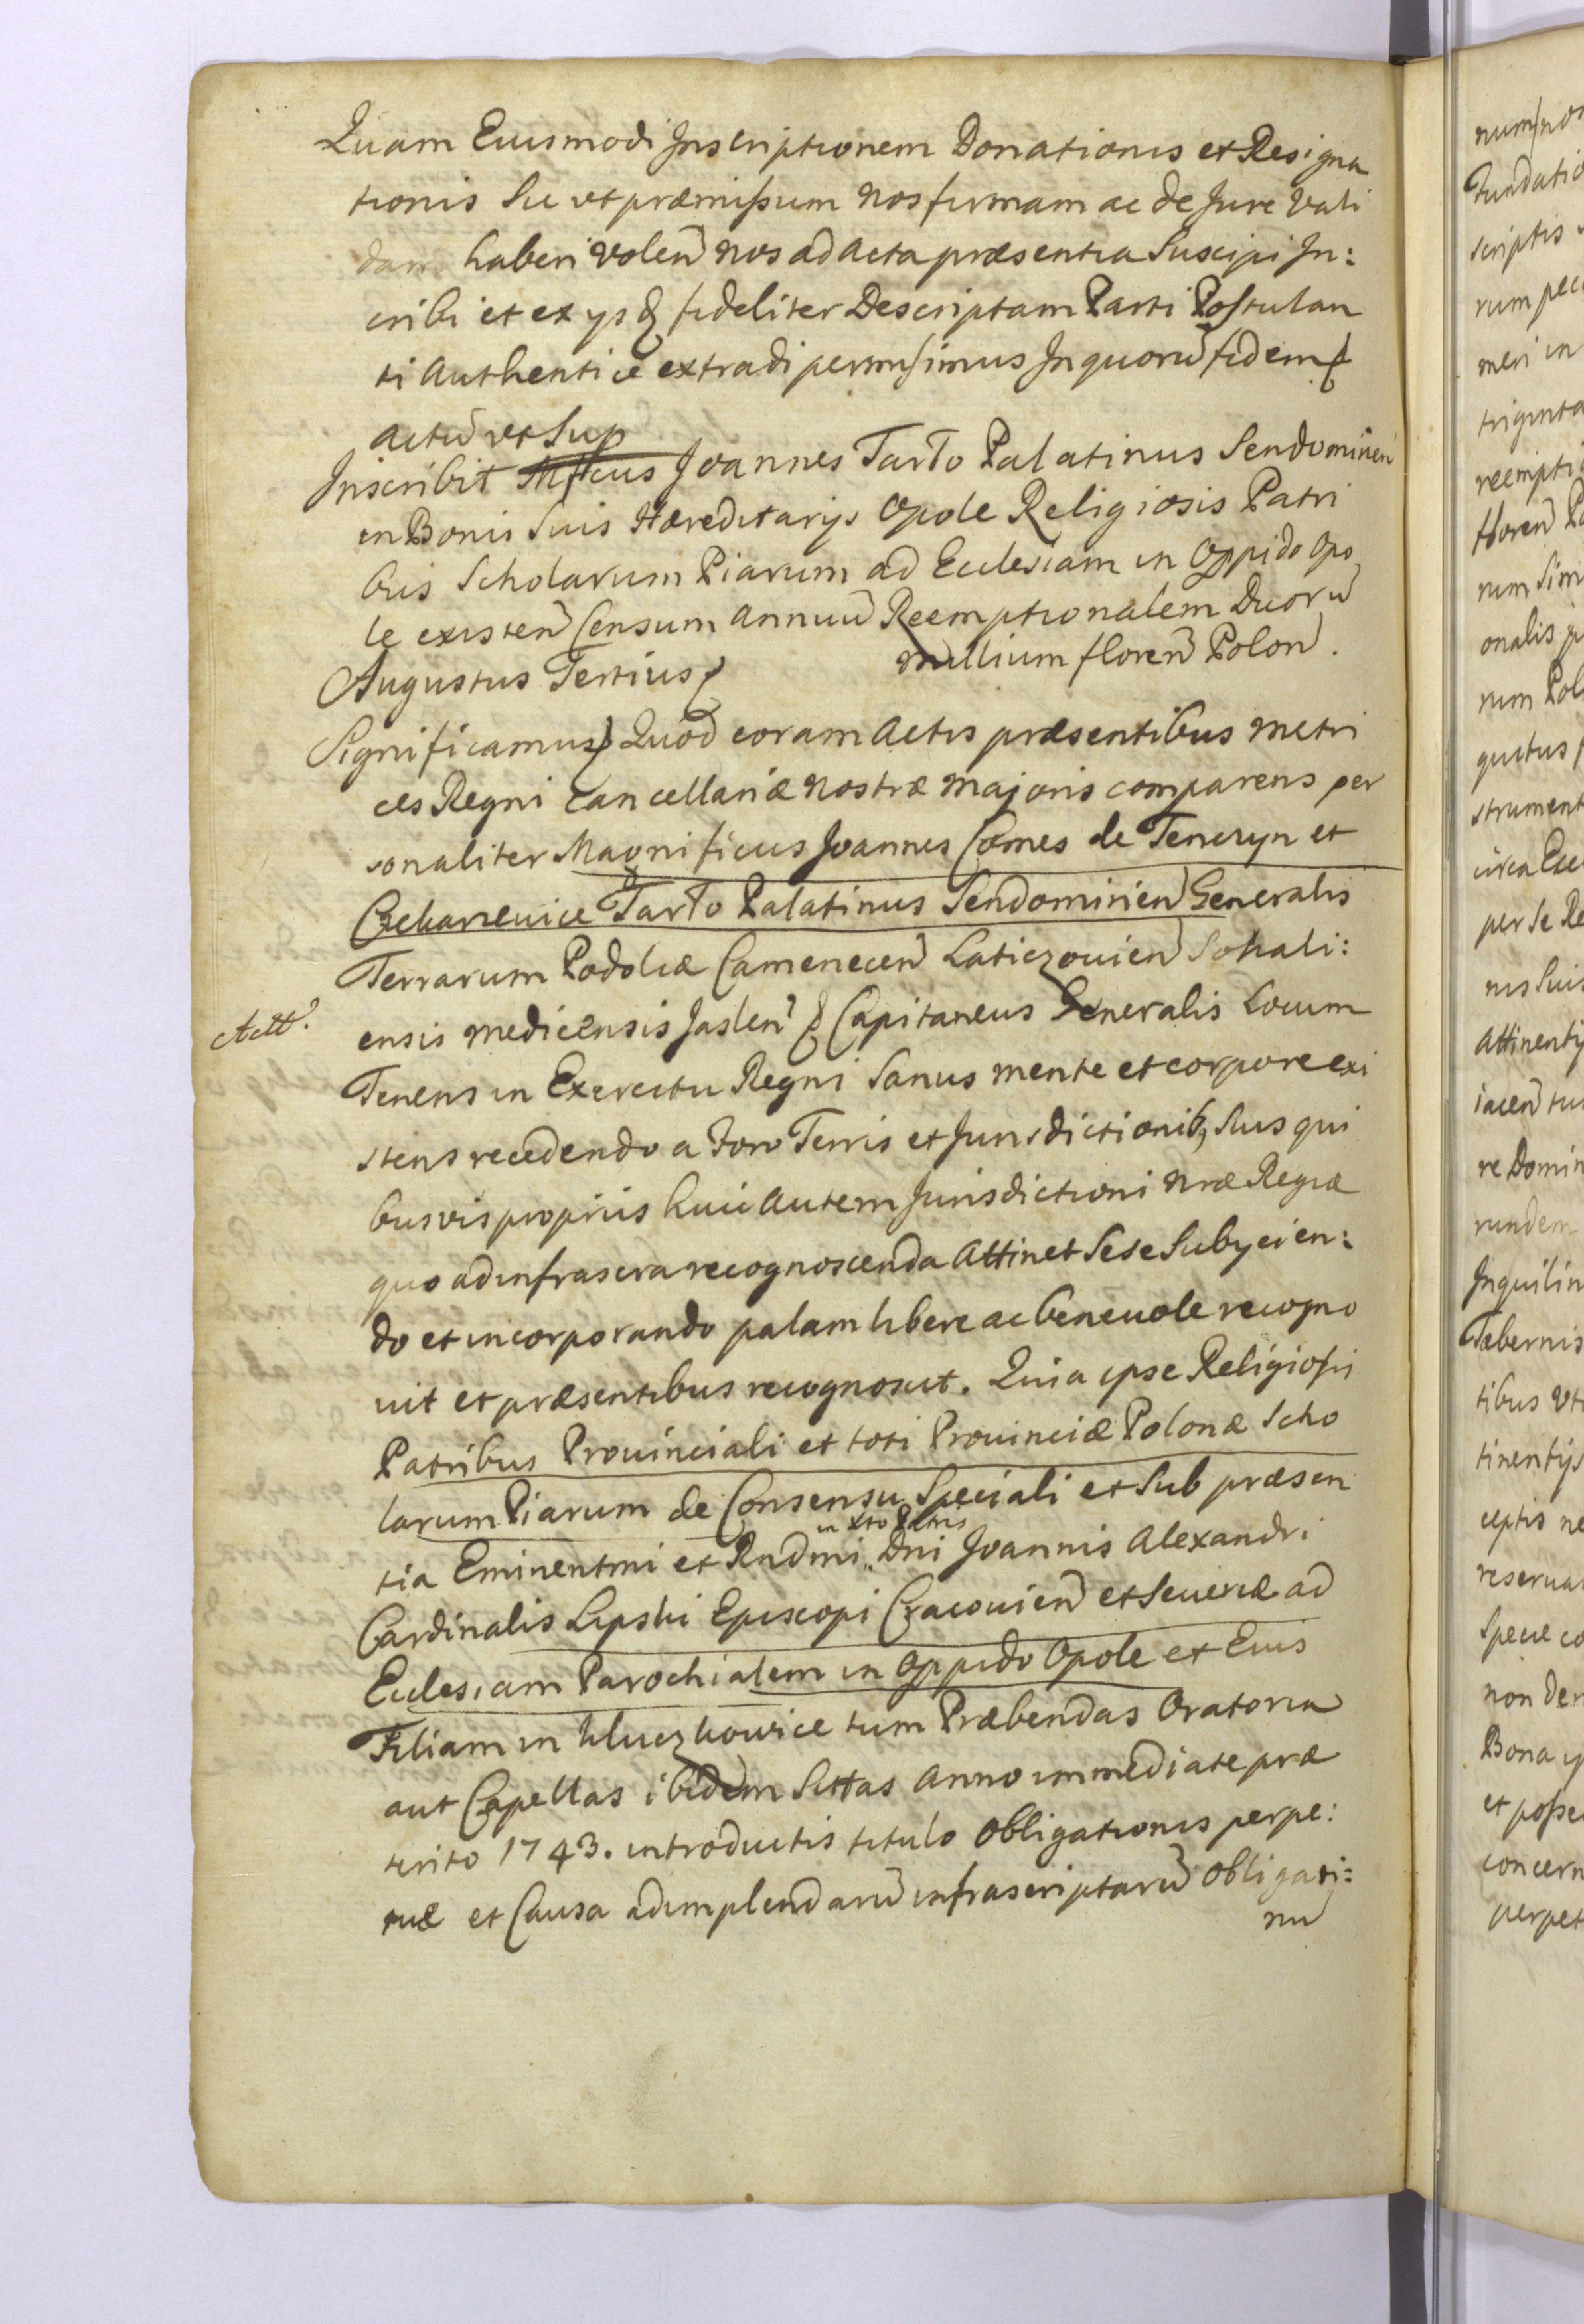 Quam Euismodi Inscriptionem Donationis et Resigna
tionis Sic ut præmissum nos firmam ac de Jure Vali
dam haberi volen nos ad Acta præsentia Suscipi In:
cribi et ex ys fideliter Descriptam Parti Postulan
ti Authentice extradi permisimus In quoru fidem
actu ut Sup
Inscribit Mfcus Joannes Tarło Palatinus Sendomirien
in Bonis Suis Hæreditarys Opole Religiosis Patri
bus Scholarum Piarum ad Ecclesiam in Oppido Opo
le existen Censum annuu Reemptionalem Duoru
millium floren Polon.
Augustus Tertius
Significamus Quod coram Actis præsentibus Metri
ces Regni Cancellariæ nostræ Majoris comparens per
sonaliter Magnificus Joannes Comes de Tenczyn et
Czekarzewice Tarło Palatinus Sendomirien Generalis
Terrarum Podoliæ Camenecen Laticzouien Sokali:
ensis Medicensis Jaslen Capitaneus Generalis Locum
Tenens in Exercitu Regni Sanus mente et corpore exi
stens recedendo a Foro Terris et Jurisdictionib, Suis qui
busvis propriis huic autem Jurisdictioni nræ Regiæ
quo ad infrascra recognoscenda Attinet Sese Subycien:
do et incorporando palam libere ac beneuole recogno
uit et præsentibus recognoscit. Quia ipse Religiosis
Patribus Prouinciali et toti Prouinciæ Polonæ Scho
larum Piarum de Consensu Speciali et Sub præsen
in Xto Patris
tia Eminentmi et Rndmi Dni Joannis Alexandri
Cardinalis Lipski Episcopi Cracouien et Seueriæ ad
Ecclesiam Parochialem in Oppido Opole et Eius
Filiam in Kluczkowice tum Præbendas Oratoria
aut Capellas ibidem Sittas Anno immediate præ
terito 1743. introductis titulo Obligationis perpe:
tuæ et Causa adimplendaru infrascriptaru Obligati:
nu
Actt.